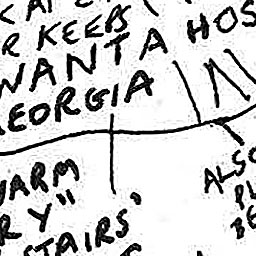 R KEEPS
WANTA HOS
EORGIA
WARM
RY"
STAIRS'
ALSO
PL
BE